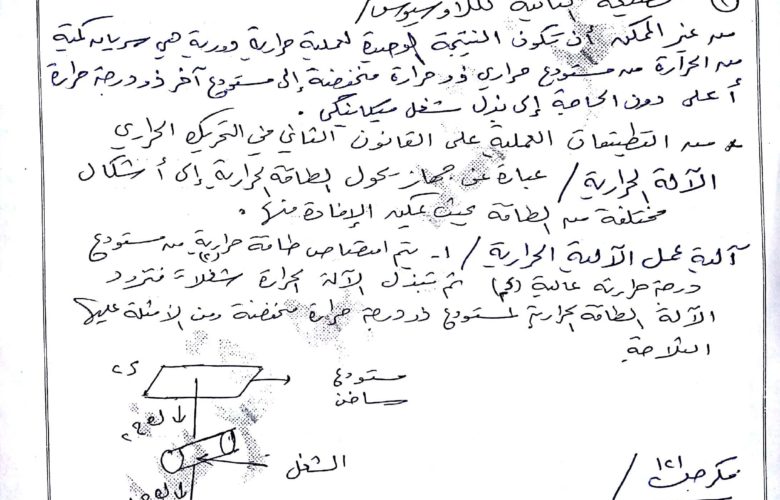 الثانية لكلاوسيوس /
من غير الممكن أن تكون النتيجة الوحيدة لعملية حرارية دورية هي سريان كمية
من الحرارة من مستودع حراري ذو حرارة منخفضة إلى مستودع آخر ذو درجة حرارة
أعلى دون الحاجة إلى بذل شغل ميكانيكي .
* من التطبيقات العملية على القانون الثاني في التحريك الحراري
الآلة الحرارية / عبارة عن جهاز يحول الطاقة الحرارية إلى أشكال
مختلفة من الطاقة بحيث يمكن الإفادة منها .
آلية عمل الآلية الحرارية / ١- يتم امتصاص طاقة حرارية من مستودع
درجة حرارته عالية ثم تبذل الآلة الحرارة شغلاً فتزود
الآلة الطاقة الحرارية لمستودع ذو درجة حرارة منخفضة ومن الأمثلة عليها
الثلاجة
مستودع
ساخن
الشغل